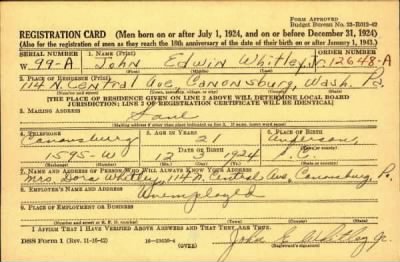 FORM APPROVED
Budget Bureau No. 33-R012-42
REGISTRATION CARD (Men born on or after July 1, 1924, and on or before December 31, 1924)
(Also for the registration of men as they reach the 18th anniversary of the date of their birth on or after January 1, 1943.)
SERIAL NUMBER 1. NAME (Print) ORDER NUMBER
W 99-A John Edwin Whitley, Jr. 12648-A
(First) (Middle) (Last)
2. PLACE OF RESIDENCE (Print)
114 N. Central Ave Canonsburg, Wash. Pa.
[THE PLACE OF RESIDENCE GIVEN ON LINE 2 ABOVE WILL DETERMINE LOCAL BOARD
JURISDICTION; LINE 2 OF REGISTRATION CERTIFICATE WILL BE IDENTICAL]
3. MAILING ADDRESS
Same
[Mailing address if other than place indicated on line 2. If same, insert word same]
4. TELEPHONE 5. AGE IN YEARS 6. PLACE OF BIRTH
Canonsburg 21 Anderson,
(Exchange) DATE OF BIRTH (Town or county)
1595-W 12 3 1924 S.C.
(Number) (Mo.) (Day) (Yr.) (State or country)
7. NAME AND ADDRESS OF PERSON WHO WILL ALWAYS KNOW YOUR ADDRESS
Mrs. Dora Whitley, 114 N. Central Ave, Canonsburg, Pa.
8. EMPLOYER'S NAME AND ADDRESS
Unemployed
9. PLACE OF EMPLOYMENT OR BUSINESS
(Number and street or R. F. D. number) (Town) (County) (State)
I AFFIRM THAT I HAVE VERIFIED ABOVE ANSWERS AND THAT THEY ARE TRUE.
DSS Form 1 (Rev. 11-16-42) (OVER) John E. Whitley Jr.
(Registrant's signature)